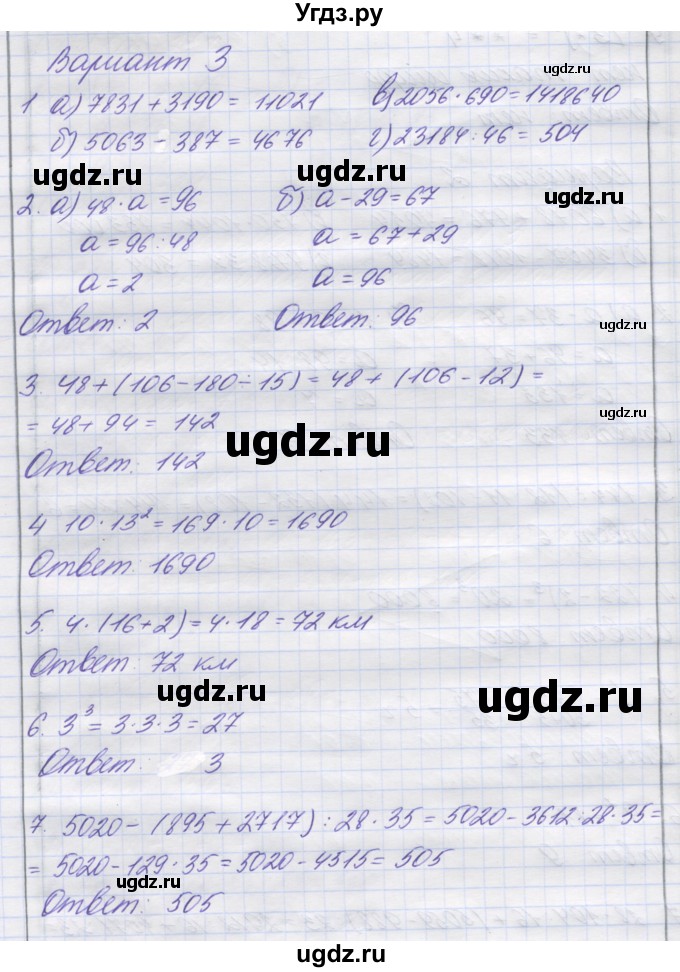 Угдз.ру
Вариант 3
1 а) 7831 + 3190 = 11021 в) 2056 · 690 = 1418640
б) 5063 - 387 = 4676 г) 23184 : 46 = 504
ugdz.ru
ugdz.ru
ugdz.ru
2. а) 48 · а = 96 б) а - 29 = 67
а = 96 : 48 а = 67 + 29
а = 2 а = 96
Ответ: 2 Ответ: 96
ugdz.ru
3. 48 + (106 - 180 ÷ 15) = 48 + (106 - 12) =
ugdz.ru
= 48 + 94 = 142
ugdz.ru
Ответ: 142
4 10 · 13² = 169 · 10 = 1690
Ответ: 1690
5. 4 · (16 + 2) = 4 · 18 = 72 км
Ответ: 72 км
ugdz.ru
ugdz.ru
6. 3³ = 3 · 3 · 3 = 27
Ответ: 3
7. 5020 - (895 + 2717) : 28 · 35 = 5020 - 3612 : 28 · 35 =
= 5020 - 129 · 35 = 5020 - 4515 = 505
ugdz.ru
Ответ: 505
ugdz.ru